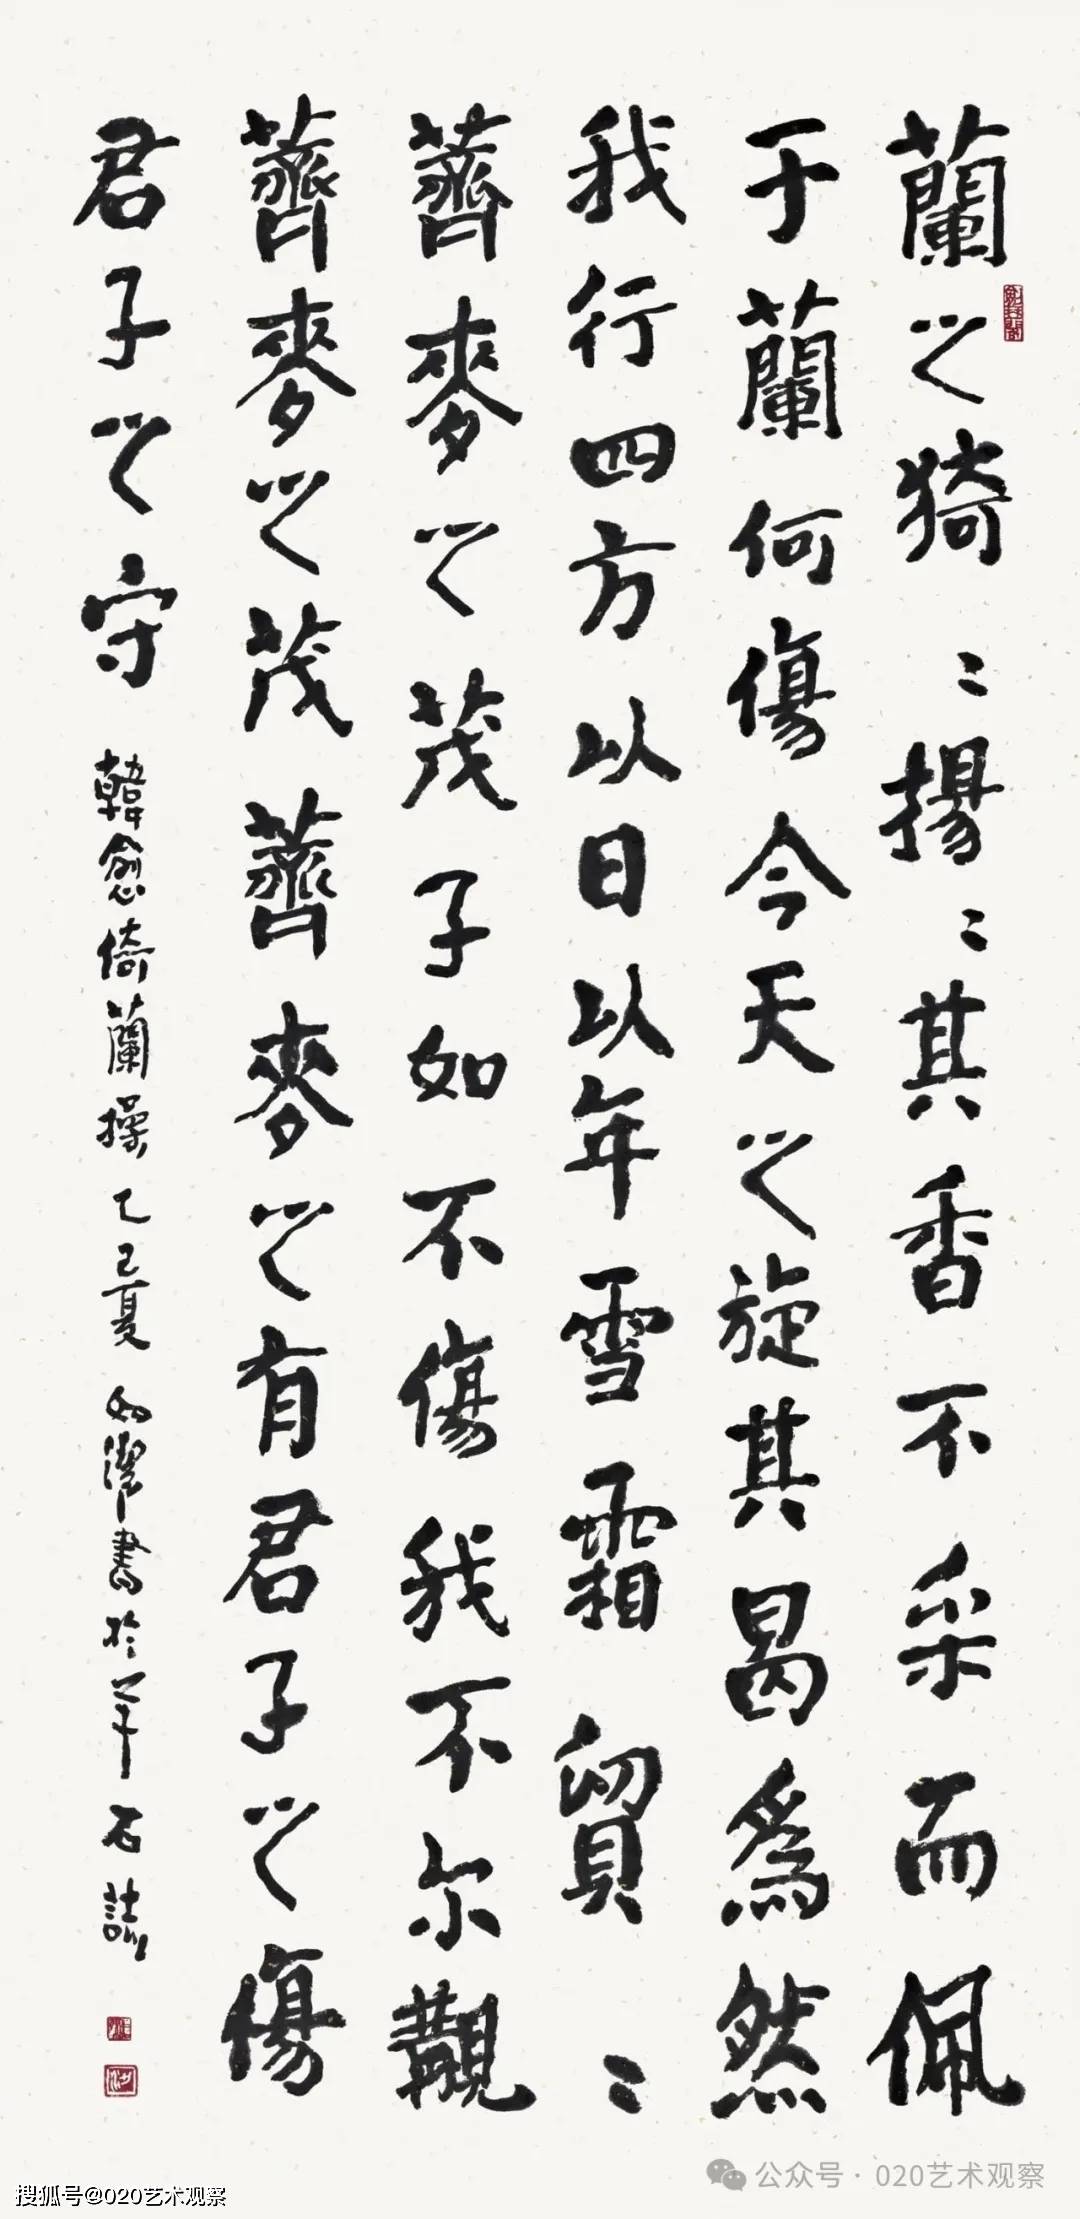 蘭之猗〻揚〻其香不采而佩
于蘭何傷今天之旋其曷爲然
我行四方以日以年雪霜貿〻
薺麥之茂子如不傷我不尔覯
薺麥之茂薺麥之有君子之傷
君子之守
韓愈倚蘭操乙巳夏如書於羊石
公众号·020艺术观察
搜狐号@020艺术观察